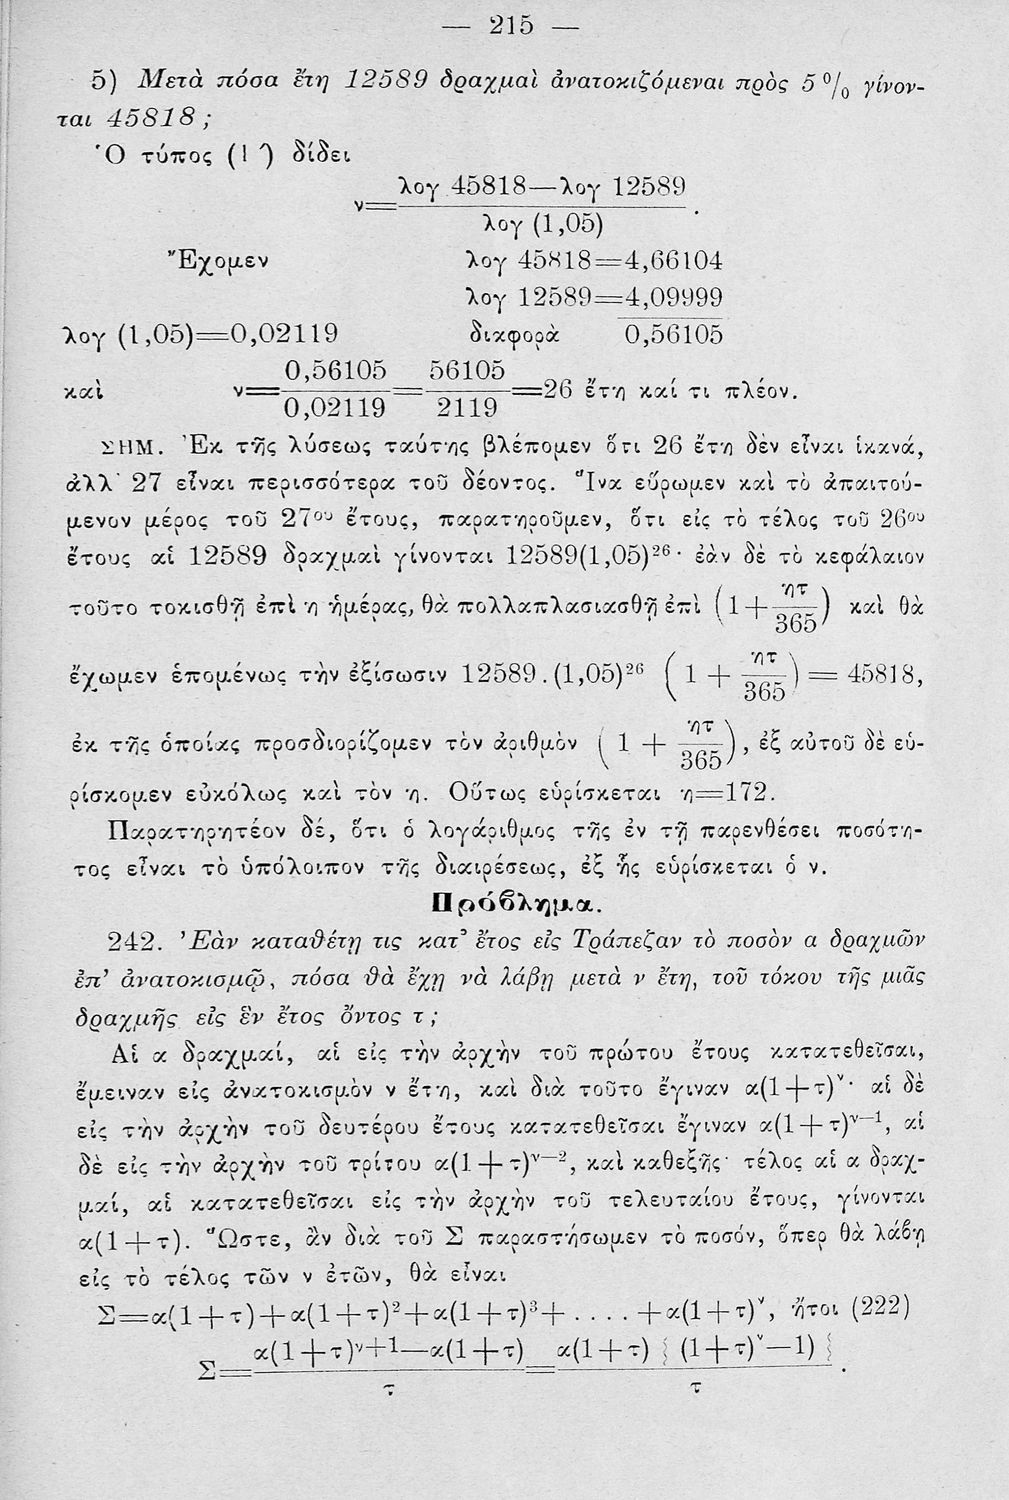 — 215 —
5) Μετὰ πόσα ἔτη 12589 δραχμαὶ ἀνατοκιζόμεναι πρὸς 5 % γίνον-
ται 45818 ;
Ὁ τύπος (Ι΄) δίδει
ν=(λογ 45818—λογ 12589)/λογ (1,05).
Ἔχομεν λογ 45818=4,66104
λογ 12589=4,09999
λογ (1,05)=0,02119 διαφορὰ 0,56105
καὶ ν=0,56105/0,02119=56105/2119=26 ἔτη καί τι πλέον.
ΣΗΜ. Ἐκ τῆς λύσεως ταύτης βλέπομεν ὅτι 26 ἔτη δὲν εἶναι ἱκανά,
ἀλλ᾽ 27 εἶναι περισσότερα τοῦ δέοντος. Ἵνα εὕρωμεν καὶ τὸ ἀπαιτού-
μενον μέρος τοῦ 27ου ἔτους, παρατηροῦμεν, ὅτι εἰς τὸ τέλος τοῦ 26ου
ἔτους αἱ 12589 δραχμαὶ γίνονται 12589(1,05)²⁶· ἐὰν δὲ τὸ κεφάλαιον
τοῦτο τοκισθῇ ἐπὶ η ἡμέρας, θὰ πολλαπλασιασθῇ ἐπὶ (1+ητ/365) καὶ θὰ
ἔχωμεν ἑπομένως τὴν ἐξίσωσιν 12589.(1,05)²⁶ (1+ητ/365)= 45818,
ἐκ τῆς ὁποίας προσδιορίζομεν τὸν ἀριθμὸν (1+ητ/365), ἐξ αὐτοῦ δὲ εὑ-
ρίσκομεν εὐκόλως καὶ τὸν η. Οὕτως εὑρίσκεται η=172.
Παρατηρητέον δέ, ὅτι ὁ λογάριθμος τῆς ἐν τῇ παρενθέσει ποσότη-
τος εἶναι τὸ ὑπόλοιπον τῆς διαιρέσεως, ἐξ ἧς εὑρίσκεται ὁ ν.
Πρόβλημα.
242. Ἐὰν καταθέτῃ τις κατ᾽ ἔτος εἰς Τράπεζαν τὸ ποσὸν α δραχμῶν
ἐπ᾽ ἀνατοκισμῷ, πόσα θὰ ἔχῃ νὰ λάβῃ μετὰ ν ἔτη, τοῦ τόκου τῆς μιᾶς
δραχμῆς εἰς ἓν ἔτος ὄντος τ ;
Αἱ α δραχμαί, αἱ εἰς τὴν ἀρχὴν τοῦ πρώτου ἔτους κατατεθεῖσαι,
ἔμειναν εἰς ἀνατοκισμὸν ν ἔτη, καὶ διὰ τοῦτο ἔγιναν α(1+τ)^ν· αἱ δὲ
εἰς τὴν ἀρχὴν τοῦ δευτέρου ἔτους κατατεθεῖσαι ἔγιναν α(1+τ)^ν—1, αἱ
δὲ εἰς τὴν ἀρχὴν τοῦ τρίτου α(1+τ)^ν—2, καὶ καθεξῆς· τέλος αἱ α δραχ-
μαί, αἱ κατατεθεῖσαι εἰς τὴν ἀρχὴν τοῦ τελευταίου ἔτους, γίνονται
α(1+τ). Ὥστε, ἂν διὰ τοῦ Σ παραστήσωμεν τὸ ποσόν, ὅπερ θὰ λάβῃ
εἰς τὸ τέλος τῶν ν ἐτῶν, θὰ εἶναι
Σ=α(1+τ)+α(1+τ)²+α(1+τ)³+ .... +α(1+τ)^ν, ἤτοι (222)
Σ=(α(1+τ)^ν+1—α(1+τ))/τ=α(1+τ) { (1+τ)^ν—1) }/τ.